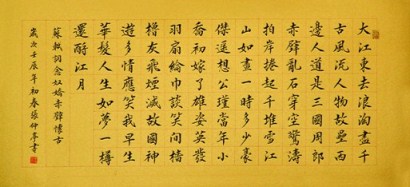 大江東去浪淘盡千
古風流人物故壘西
邊人道是三國周郎
赤壁亂石穿空驚濤
拍岸捲起千堆雪江
山如畫一時多少豪
傑遙想公瑾當年小
喬初嫁了雄姿英發
羽扇綸巾談笑間檣
櫓灰飛煙滅故國神
遊多情應笑我早生
華髮人生如夢一樽
還酹江月
蘇軾詞念奴嬌赤壁懷古
歲次壬辰年初春張仲亭書